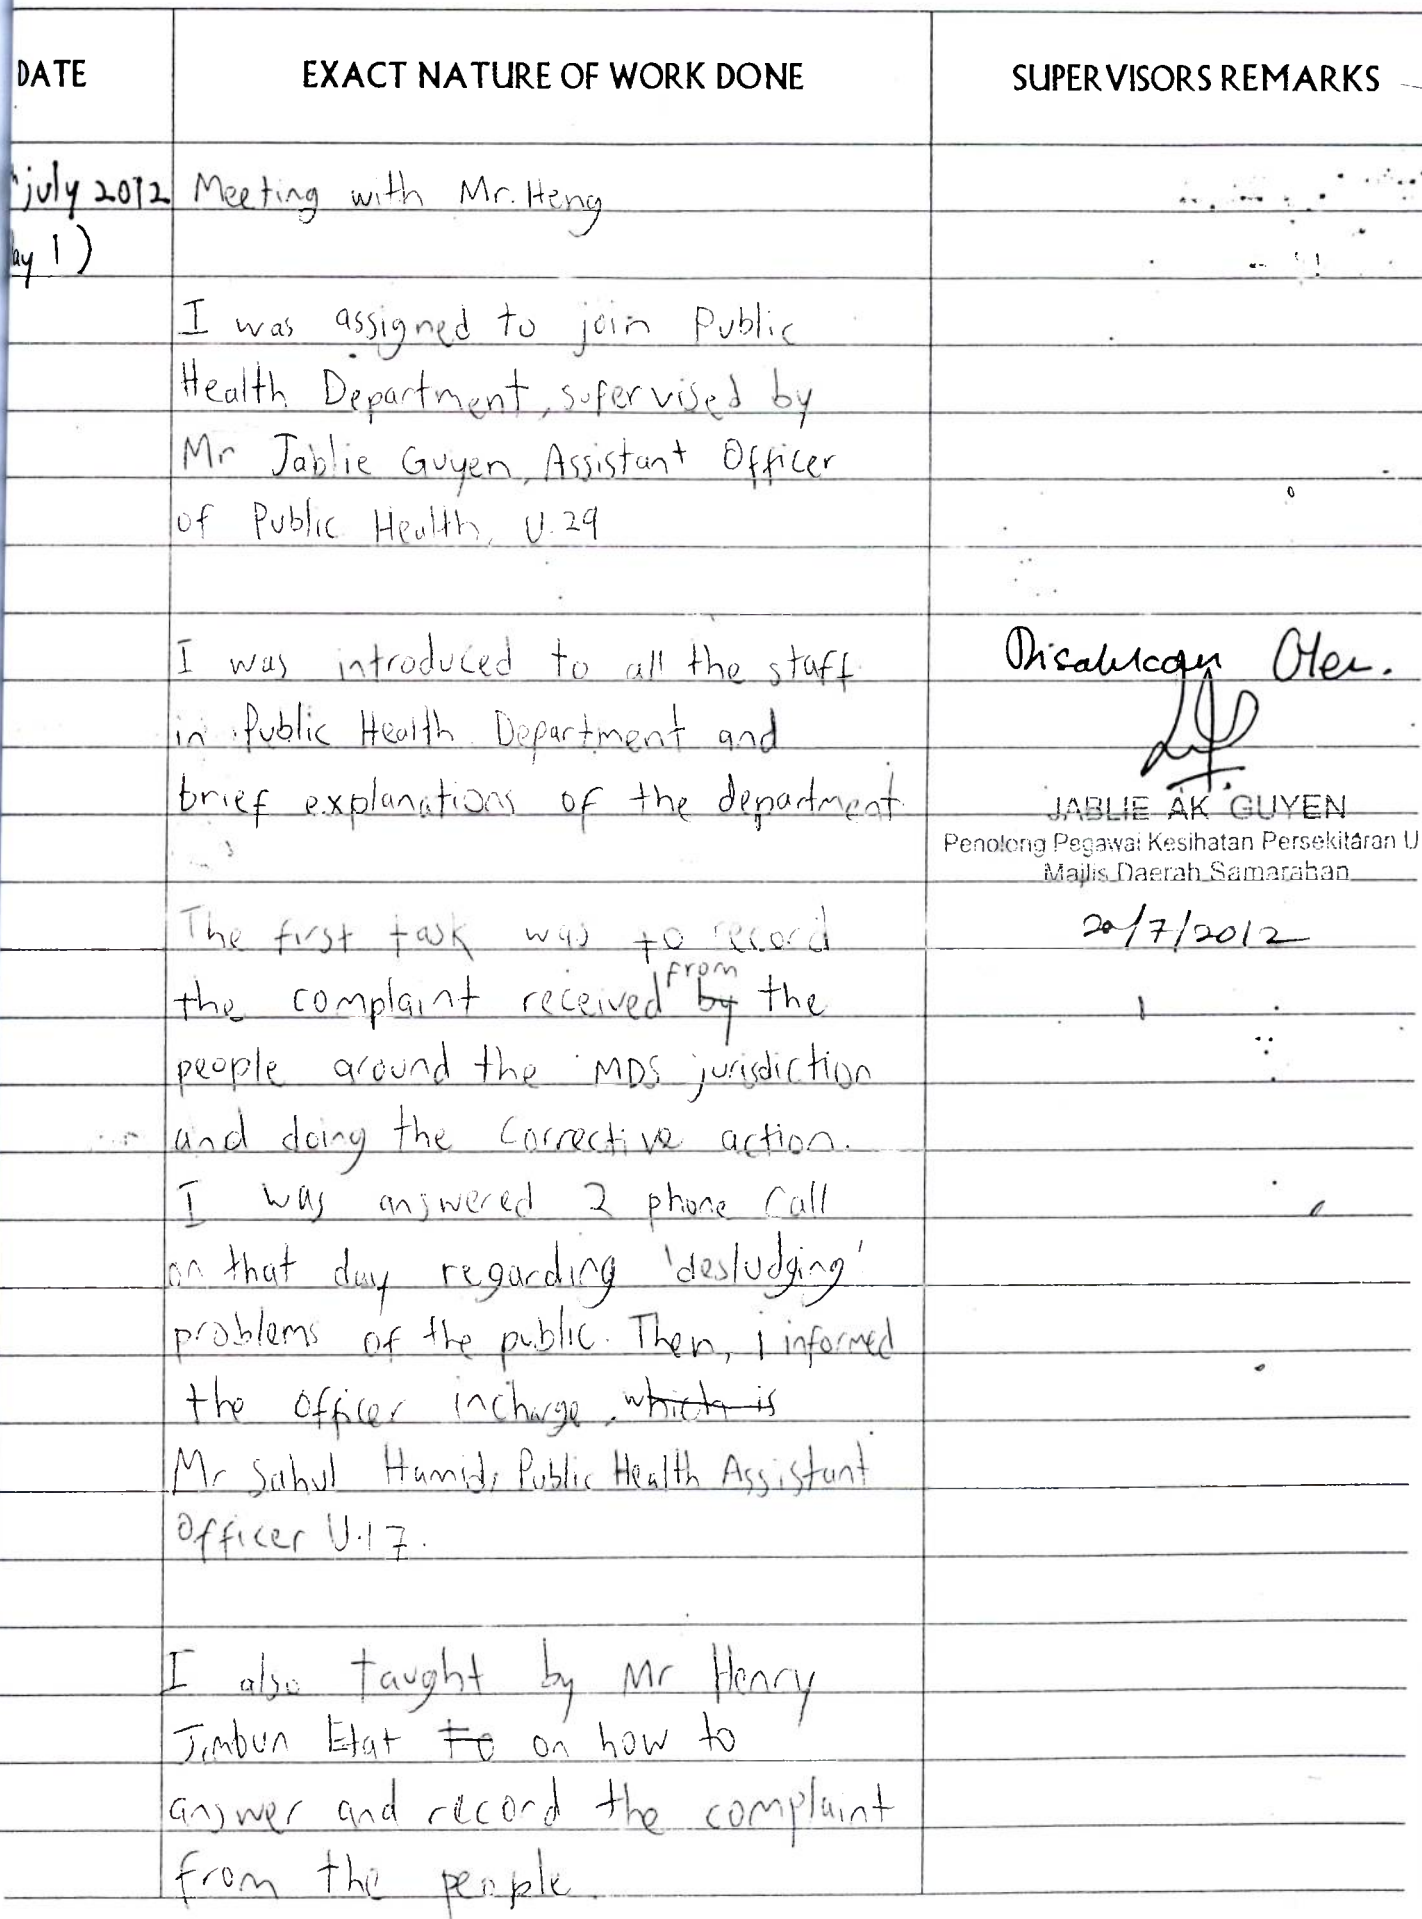 DATE EXACT NATURE OF WORK DONE SUPERVISORS REMARKS
july 2012 Meeting with Mr. Heng
ay 1)
I was assigned to join Public
Health Department, supervised by
Mr Jablie Guyen, Assistant Officer
of Public Health, U.29
I was introduced to all the staff
in Public Health Department and
brief explanations of the department
The first task was to record
the complaint received from by the
people around the MDS jurisdiction
and doing the corrective action.
I was answered 2 phone call
on that day regarding 'desludging'
problems of the public. Then, I informed
the officer incharge, which is
Mr Sahul Hamid, Public Health Assistant
Officer U.17.
I also taught by Mr Henry
Jimbun Etat to on how to
answer and record the complaint
from the people.
Disahkan Oleh.
JABLIE AK GUYEN
Penolong Pegawai Kesihatan Persekitaran U
Majlis Daerah Samarahan
20/7/2012